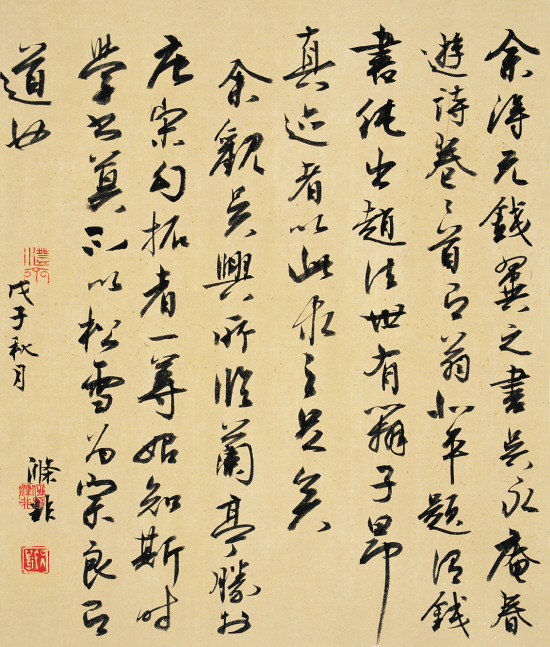 余得元錢翼之書吳永庵春
遊詩卷之首有翁北平題謂錢
書純出趙法世有辨子昂
真迹者以此求之足矣
余觀吳興所臨蘭亭勝於
唐宋勾拓者一等始知斯时
學书莫不以松雪為宗良有
道也
戊子秋月
滌非